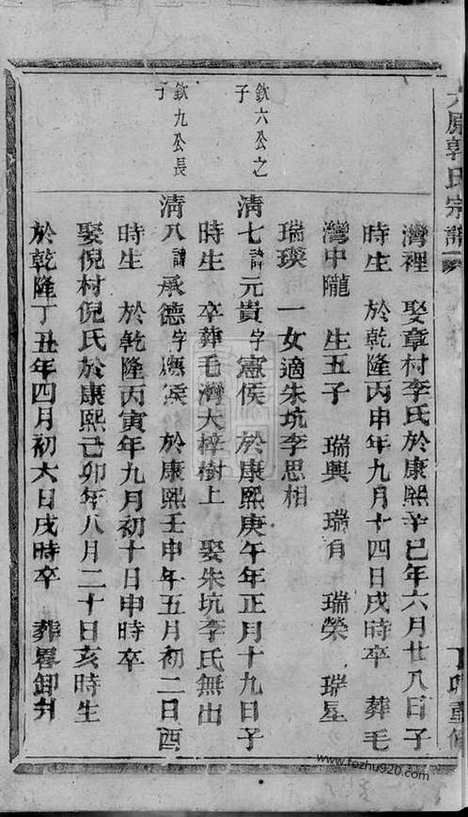 六原郭氏宗譜
丁卯重修
灣裡　娶章村李氏於康熙辛巳年六月廿八日子
時生　於乾隆丙申年九月十四日戌時卒　葬毛
灣中隴　生五子　瑞興　瑞有　瑞榮　瑞星
瑞瑛　一女適朱坑李思相
欽六公之子
清七諱元貴字憲侯　於康熙庚午年正月十九日子
時生　卒葬毛灣大樟樹上　娶朱坑李氏無出
欽九公長子
清八諱承德字　於康熙壬申年五月初二日酉
時生　於乾隆丙寅年九月初十日申時卒
娶倪村倪氏於康熙己卯年八月二十日亥時生
於乾隆丁丑年四月初六日戌時卒　葬
www.fozhu920.com